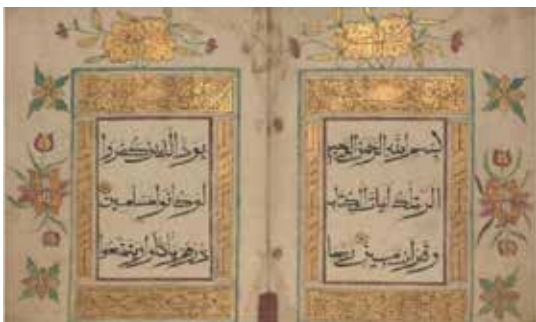 بسم الله الرحمن الرحيم
الر تلك ايات الكتاب
وقران مبين ربما
يود الذين كفروا
لو كانوا مسلمين
ذرهم ياكلوا ويتمتعوا